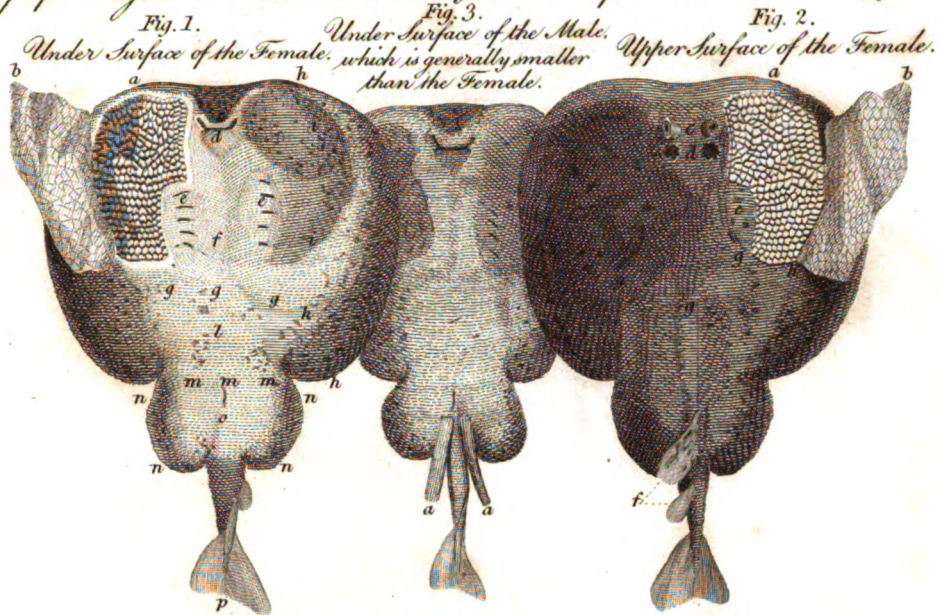 Fig. 1.
Under Surface of the Female.
Fig. 3.
Under Surface of the Male.
which is generally smaller
than the Female.
Fig. 2.
Upper Surface of the Female.
b a h
d
f
g g g
l k
m m m h
n n
o
n n
p
a a
a b
c
d
g
f